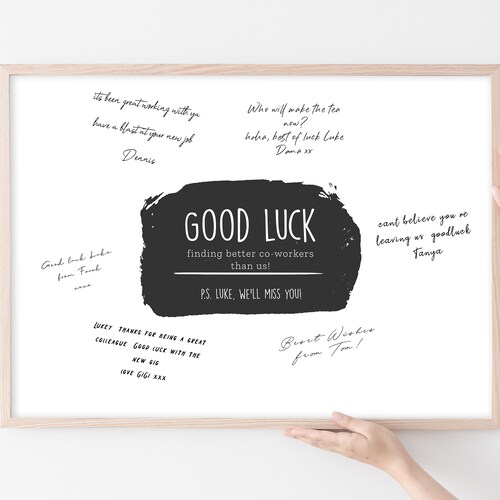 its been great working with ya
have a blast at your new job
Dennis
Who will make the tea
now?
haha, best of luck Luke
Dana xx
GOOD LUCK
finding better co-workers
than us!
P.S. LUKE, WE'LL MISS YOU!
cant believe you're
leaving us goodluck
Tanya
Good luck Luke
from Frank
xoxo
LUKEY THANKS FOR BEING A GREAT
COLLEAGUE GOOD LUCK WITH THE
NEW GIG
LOVE GIGI XXX
Best Wishes
from Tom!